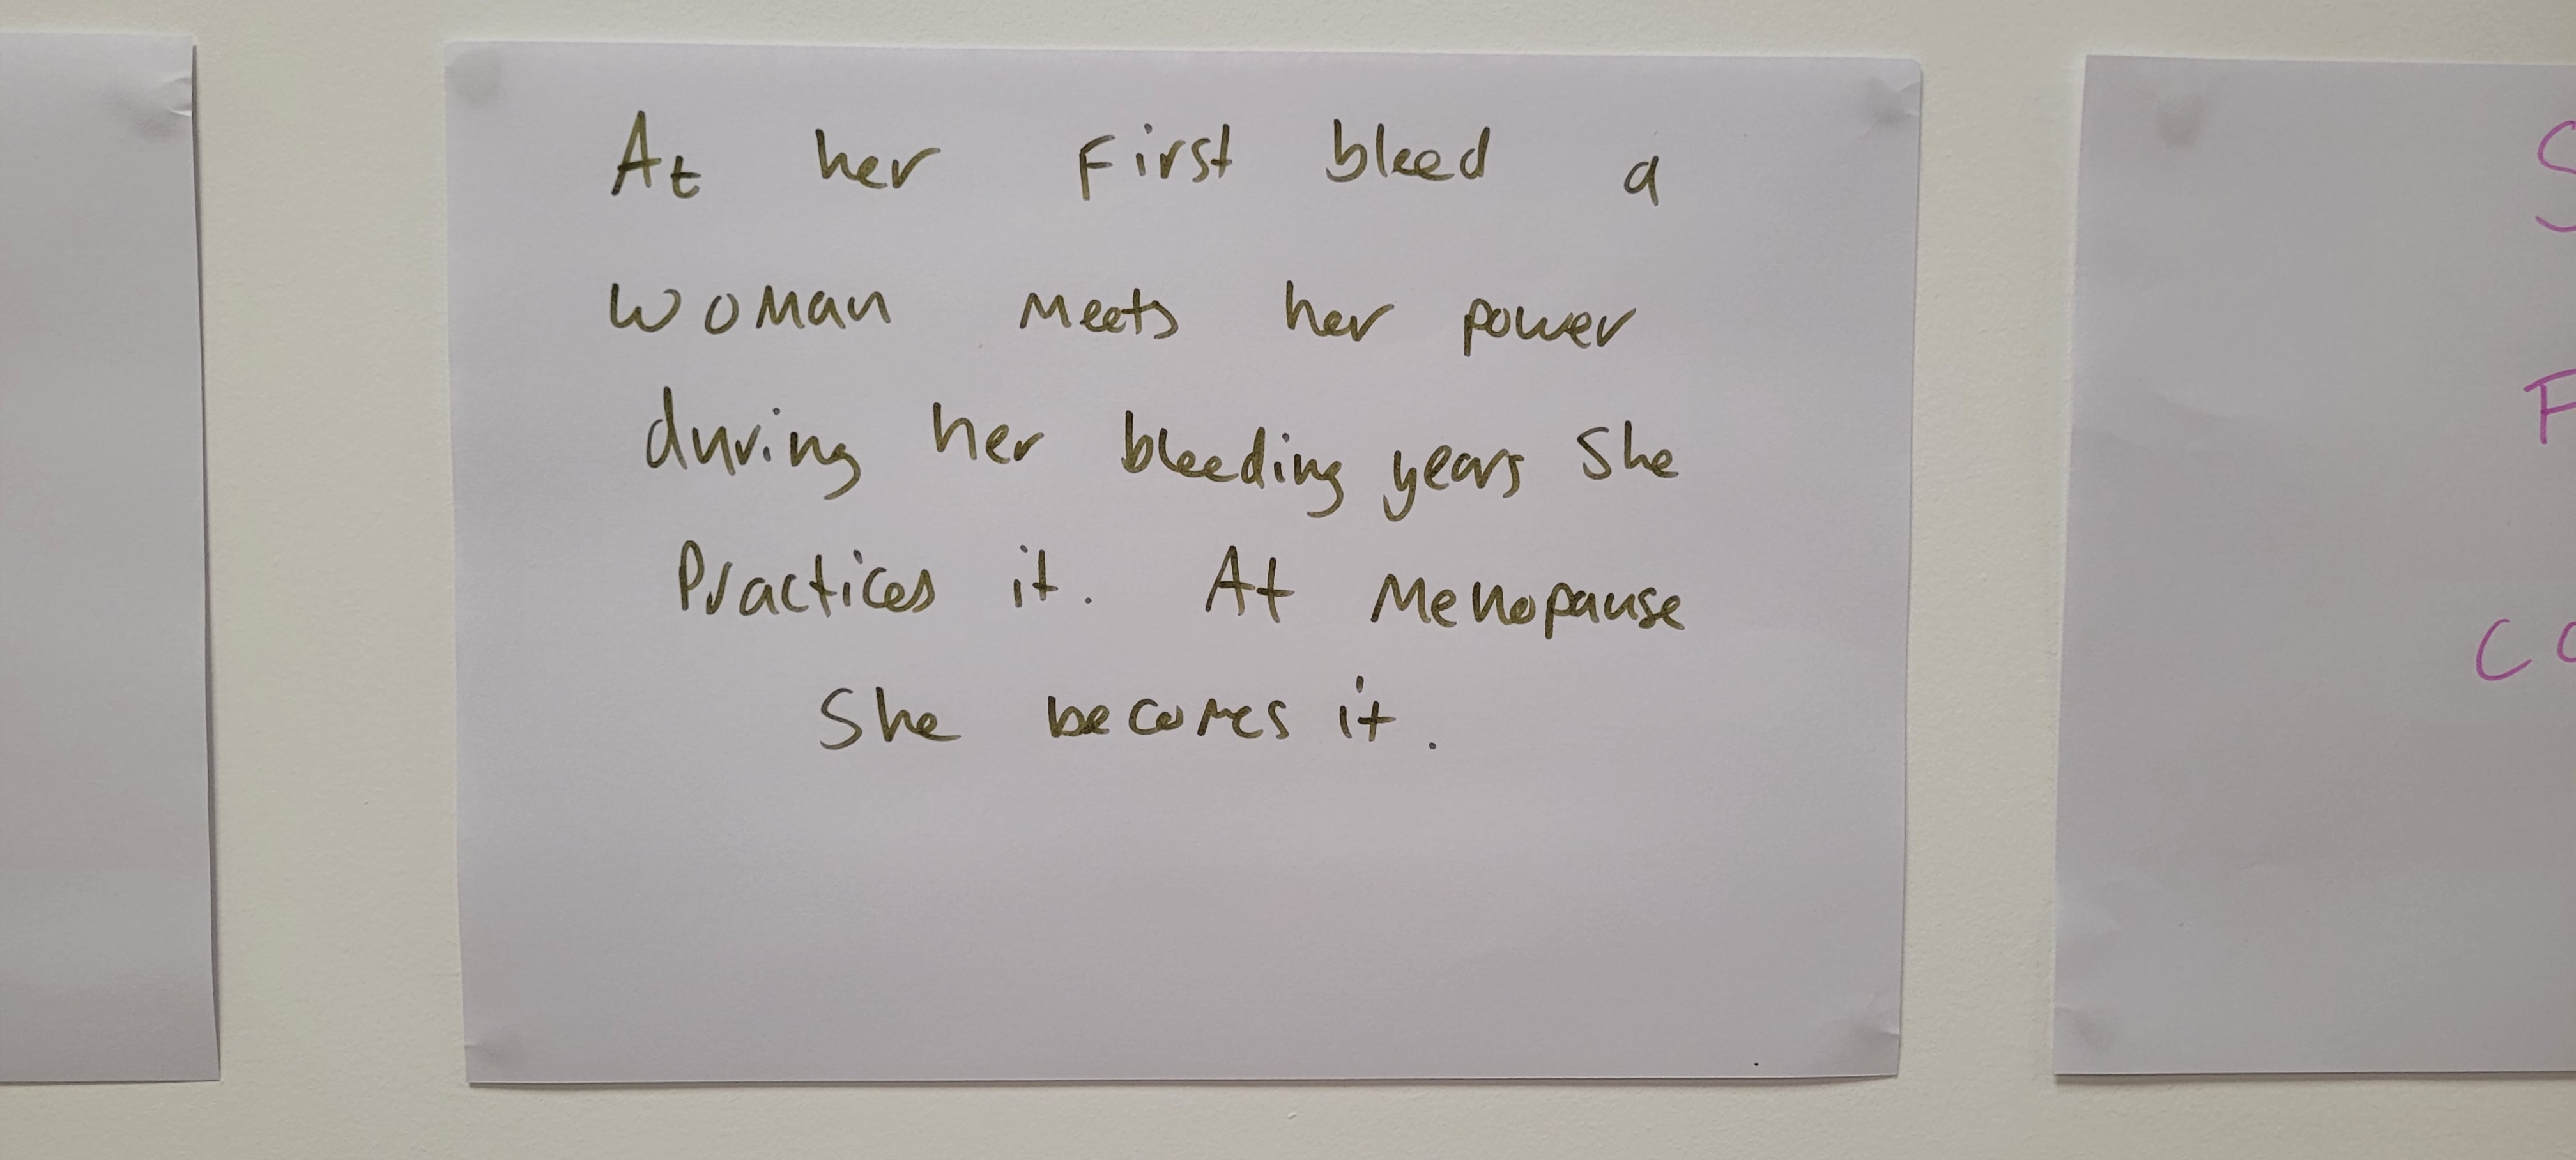 At her first bleed a
woman meets her power
during her bleeding years she
Practices it. At Menopause
She becomes it.
S
F
co